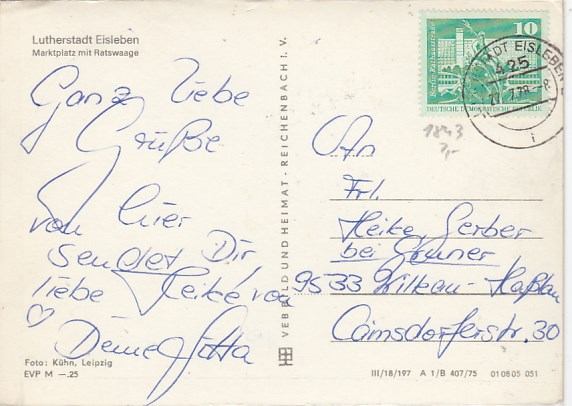 Lutherstadt Eisleben
Marktplatz mit Ratswaage
Ganz liebe
Grüße
von hier
sendet Dir,
liebe Heike
♡
Deine Jutta
Foto: Kühn, Leipzig
EVP M —.25
VEB BILD UND HEIMAT · REICHENBACH I. V.
10
Berlin
DEUTSCHE DEMOKRATISCHE REPUBLIK
STADT EISLEBEN
425
i
1843
An
Frl.
Heike Gerber
bei Gruner
9533 Wilkau-Haßlau
Cainsdorferstr. 30
III/18/197 A 1/B 407/75 01 08 05 051